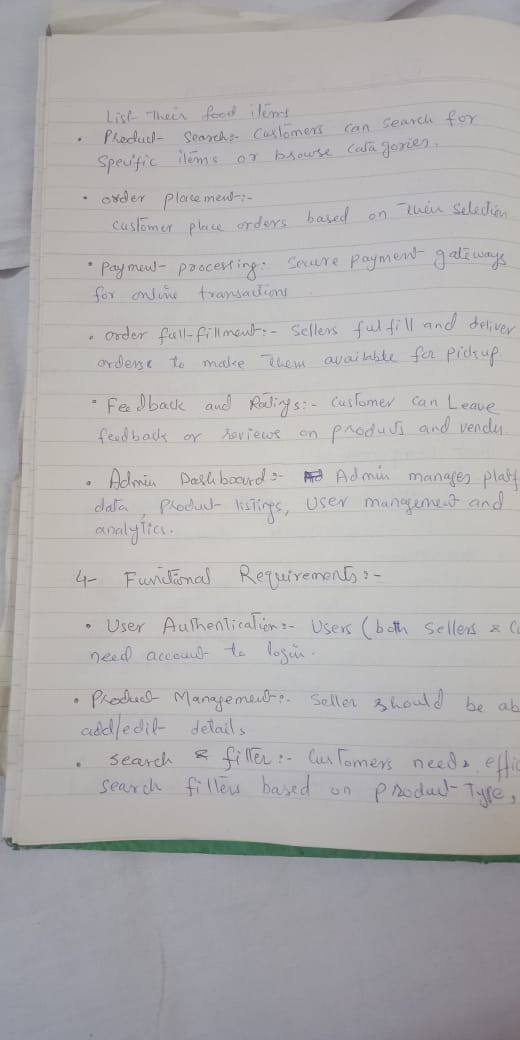 List Their food items
• Product Search:- Customers can search for
Specific items or browse catagories.
• order placement:-
Customer place orders based on Their Selection
• Payment processing: Secure payment gateways
for online transactions
• order full-fillment:- Sellers fulfill and deliver
orders to make Them available for pickup.
• Feedback and Ratings:- Customer can Leave
feedback or reviews on products and
• Admin Dashboard:- Admin manages
data, Product listings, User management and
analytics.
4- Functional Requirements:-
• User Authentication:- Users (both Sellers &
need account to login.
• Product Management:- Seller should be
add/edit details
• Search & filter:- Customers needs
Search filters based on Product Type,